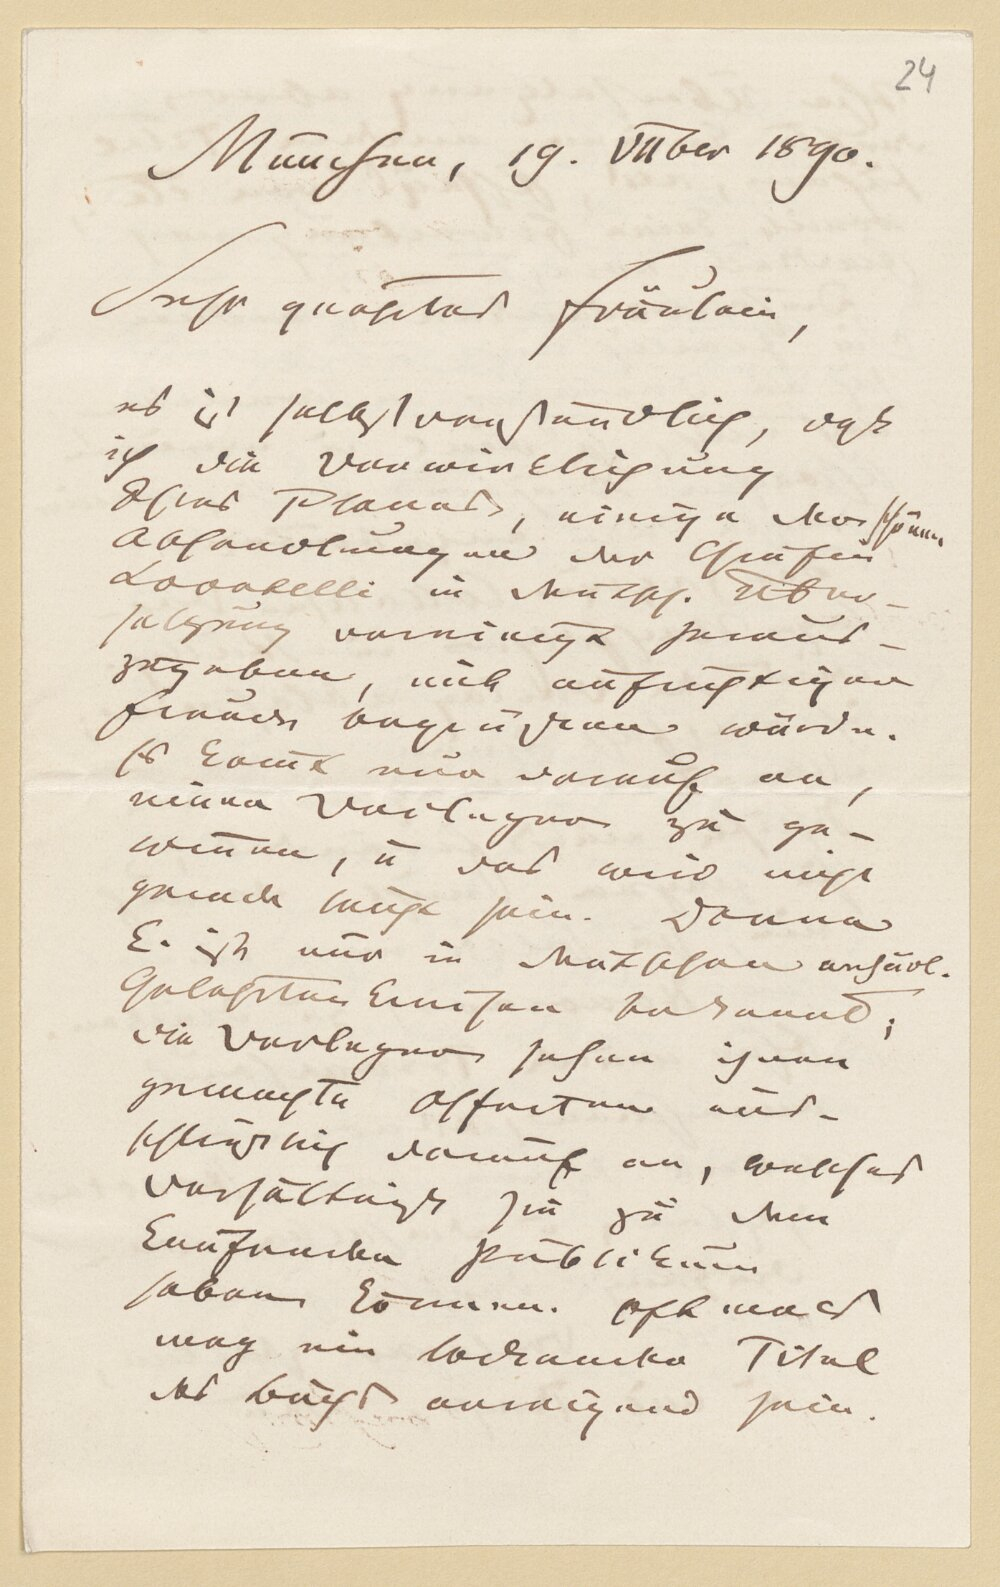 24
München, 19. VIIber 1890.
Sehr geehrtes Fräulein,
es ist selbstverständlich, daß
ich die Verwirklichung
Ihres Planes, einige der schönen
Abhandlungen der Gräfin
Lovatelli in deutsch. Über-
setzung vereinigt heraus-
zugeben, mit aufrichtiger
Freude begrüßen würde.
Es komt nur darauf an,
einen Verleger zu ge-
winnen, u das wird nicht
gerade leicht sein. Donna
E. ist nur in deutschen archäol.
Gelehrtenkreisen bekannt;
die Verleger sehen ihnen
gemachte Offerten aus-
schließlich darauf an, welches
Verhältniß sie zu dem
kaufenden Publikum
haben können. Oftmals
mag ein lockender Titel
des Buchs entscheidend sein.